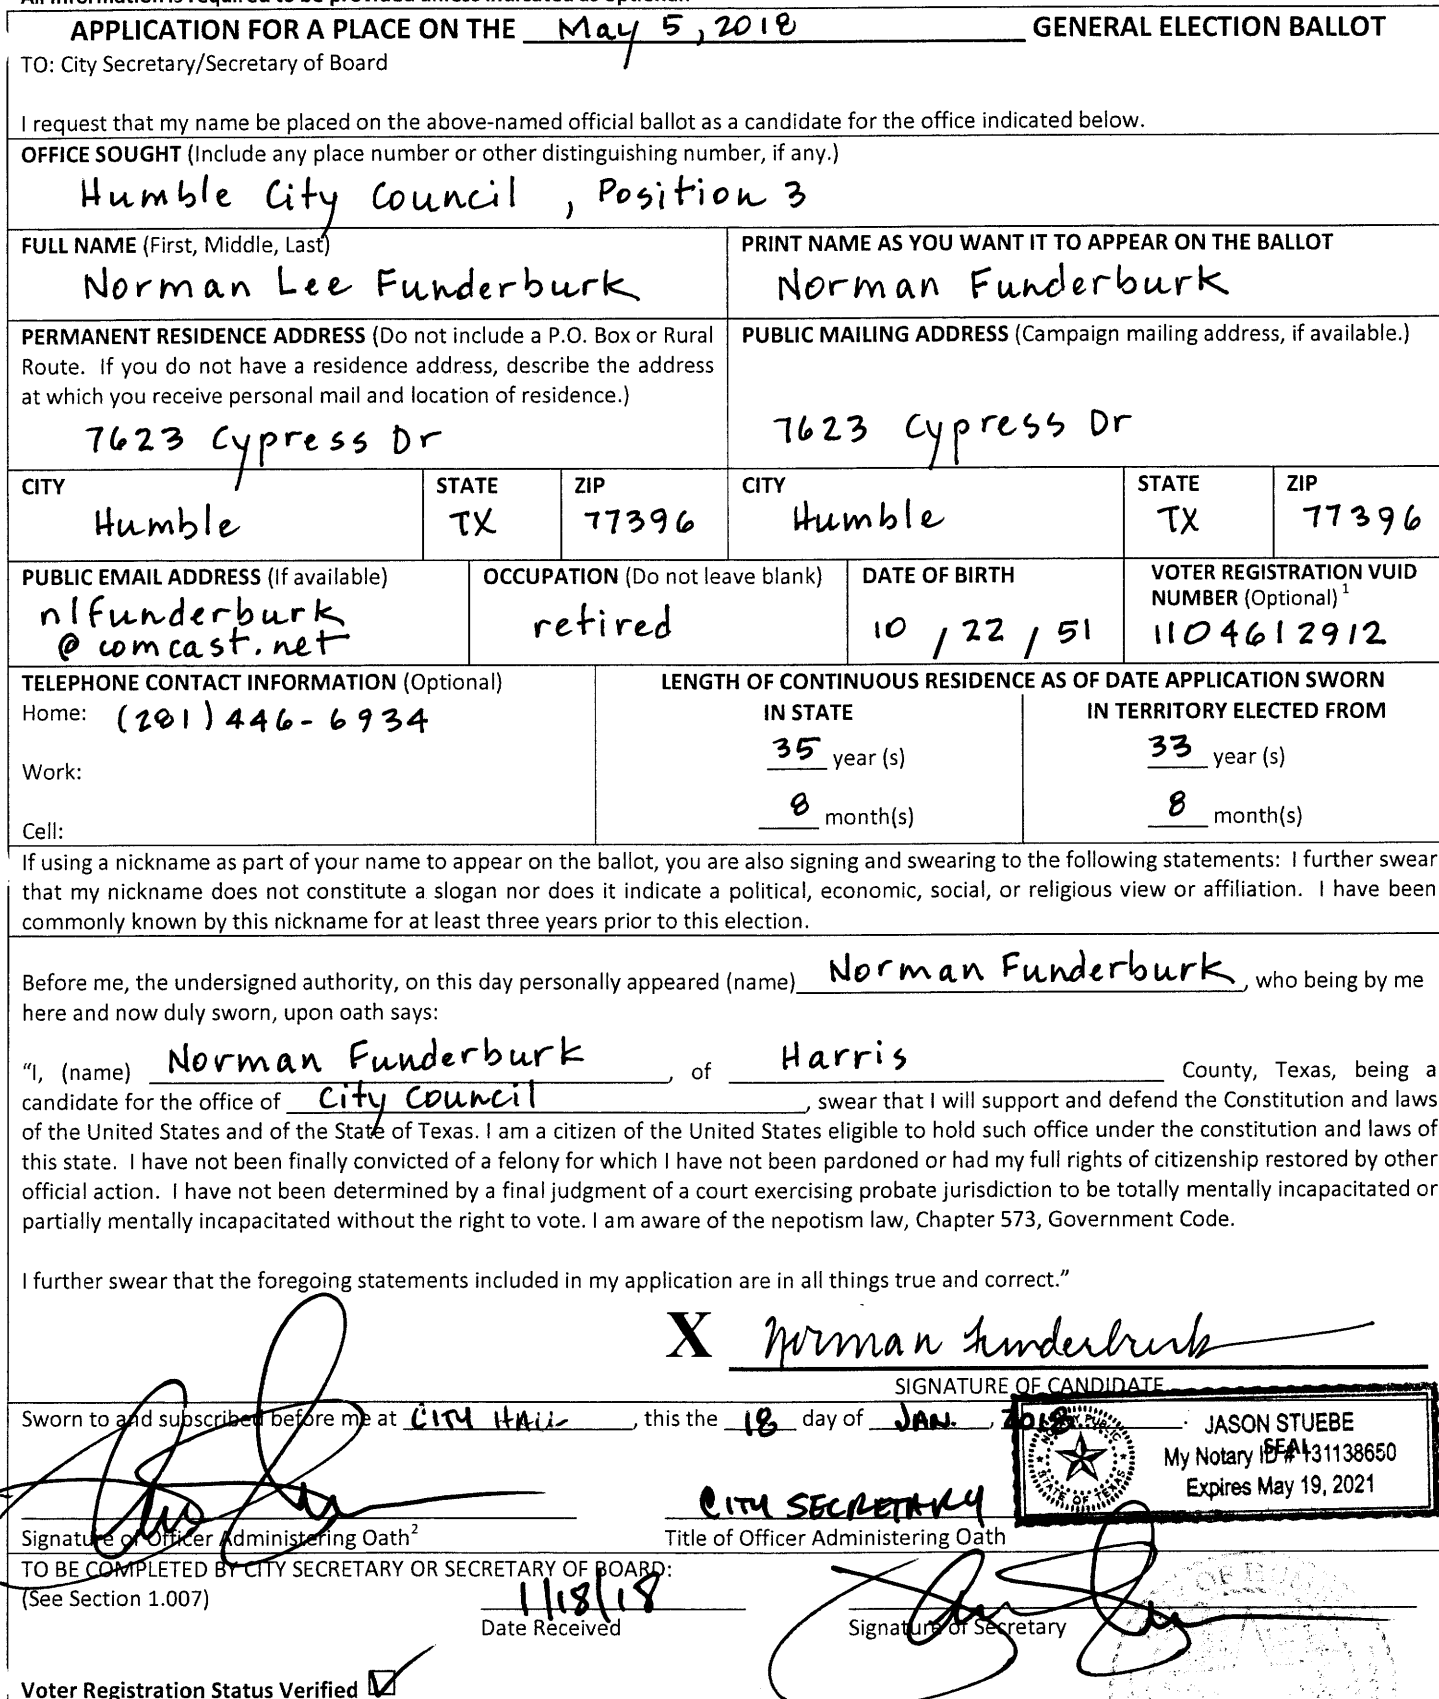 APPLICATION FOR A PLACE ON THE May 5, 2018 GENERAL ELECTION BALLOT
TO: City Secretary/Secretary of Board
I request that my name be placed on the above-named official ballot as a candidate for the office indicated below.
OFFICE SOUGHT (Include any place number or other distinguishing number, if any.)
Humble City Council , Position 3
FULL NAME (First, Middle, Last)
Norman Lee Funderburk
PRINT NAME AS YOU WANT IT TO APPEAR ON THE BALLOT
Norman Funderburk
PERMANENT RESIDENCE ADDRESS (Do not include a P.O. Box or Rural
Route. If you do not have a residence address, describe the address
at which you receive personal mail and location of residence.)
7623 Cypress Dr
PUBLIC MAILING ADDRESS (Campaign mailing address, if available.)
7623 Cypress Dr
CITY
Humble
STATE
TX
ZIP
77396
CITY
Humble
STATE
TX
ZIP
77396
PUBLIC EMAIL ADDRESS (If available)
nlfunderburk
@comcast.net
OCCUPATION (Do not leave blank)
retired
DATE OF BIRTH
10 / 22 / 51
VOTER REGISTRATION VUID
NUMBER (Optional) 1
1104612912
TELEPHONE CONTACT INFORMATION (Optional)
Home: (281) 446-6934
Work:
Cell:
LENGTH OF CONTINUOUS RESIDENCE AS OF DATE APPLICATION SWORN
IN STATE
35 year (s)
8 month(s)
IN TERRITORY ELECTED FROM
33 year (s)
8 month(s)
If using a nickname as part of your name to appear on the ballot, you are also signing and swearing to the following statements: I further swear
that my nickname does not constitute a slogan nor does it indicate a political, economic, social, or religious view or affiliation. I have been
commonly known by this nickname for at least three years prior to this election.
Before me, the undersigned authority, on this day personally appeared (name) Norman Funderburk, who being by me
here and now duly sworn, upon oath says:
"I, (name) Norman Funderburk, of Harris County, Texas, being a
candidate for the office of City Council, swear that I will support and defend the Constitution and laws
of the United States and of the State of Texas. I am a citizen of the United States eligible to hold such office under the constitution and laws of
this state. I have not been finally convicted of a felony for which I have not been pardoned or had my full rights of citizenship restored by other
official action. I have not been determined by a final judgment of a court exercising probate jurisdiction to be totally mentally incapacitated or
partially mentally incapacitated without the right to vote. I am aware of the nepotism law, Chapter 573, Government Code.
I further swear that the foregoing statements included in my application are in all things true and correct."
X Norman Funderburk
SIGNATURE OF CANDIDATE
Sworn to and subscribed before me at CITY HALL, this the 18 day of JAN., 2018.
NOTARY PUBLIC
STATE OF TEXAS
JASON STUEBE
My Notary ID # 131138650
SEAL
Expires May 19, 2021
Signature of Officer Administering Oath2
CITY SECRETARY
Title of Officer Administering Oath
TO BE COMPLETED BY CITY SECRETARY OR SECRETARY OF BOARD:
(See Section 1.007)
1/18/18
Date Received
Signature of Secretary
Voter Registration Status Verified